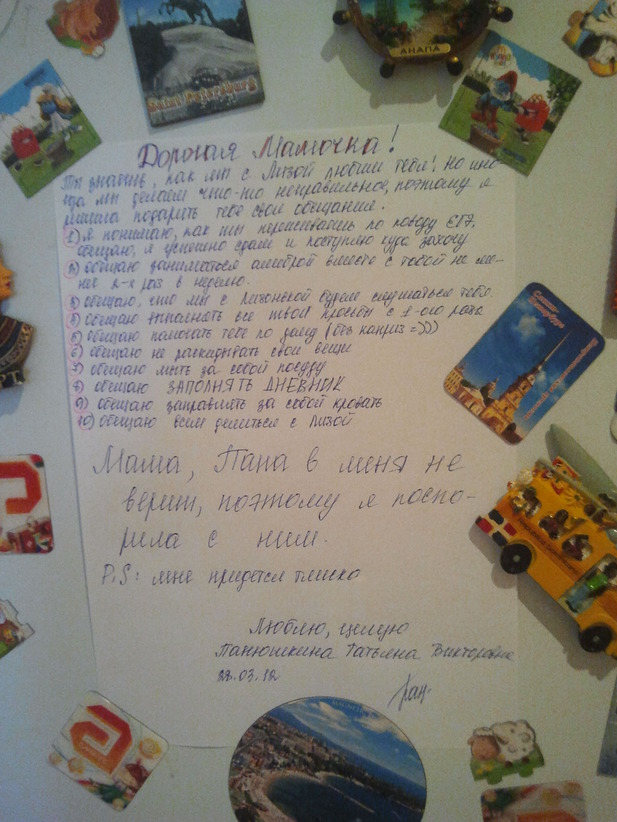 Saint Petersburg
АНАПА
Дорогая Мамочка!
Ты знаешь, как мы с Лизой любим тебя! Но ино-
гда мы делаем что-то неправильное, поэтому я
решила подарить тебе свои обещания.
1) Я понимаю, как ты переживаешь по поводу ЕГЭ,
обещаю, я успешно сдам и поступлю куда захочу
2) обещаю заниматься алгеброй вместе с тобой не ме-
нее 2-х раз в неделю.
3) обещаю, что мы с Лизонькой будем слушаться тебя.
4) обещаю выполнять все твои просьбы с 1-ого раза
5) обещаю помогать тебе по дому (без каприз =)))
6) обещаю не раскидывать свои вещи
7) обещаю мыть за собой посуду
8) обещаю ЗАПОЛНЯТЬ ДНЕВНИК
9) обещаю заправлять за собой кровать
10) обещаю всем делиться с Лизой
Мама, Папа в меня не
верит, поэтому я поспо-
рила с ним.
P.S: мне придется тяжко
Люблю, целую
Панюшкина Татьяна Викторовна
03.12